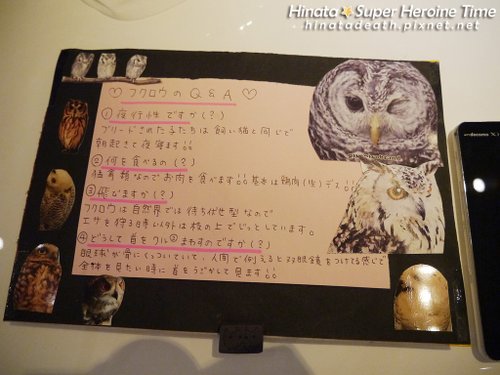 Hinata★Super Heroine Time
hinatadeath.pixnet.net
♡フクロウのQ&A♡
①夜行性ですか(?)
ブリードされた子たちは飼い猫と同じで
朝起きて夜寝ます!!
②何を食べるの(?)
猛禽類なのでお肉を食べます!!基本は鶏肉(生)デス!!
③飛びますか(?)
フクロウは自然界では待ち伏せ型なので
エサを狩る時以外は枝の上でじっとしています。
④どうして首をクルクルまわすのですか(?)
眼球が骨にくっついていて、人間で例えると双眼鏡をつけてる感じで
全体を見たい時に首をうごかして見ます!!
docomo